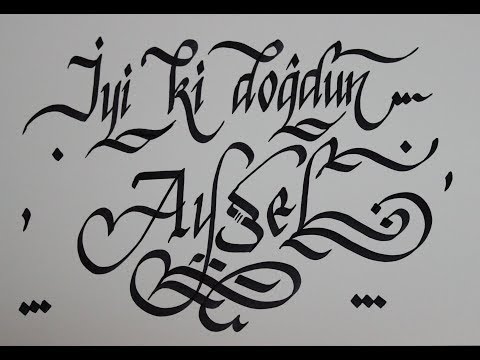 İyi ki doğdun...
Aysel